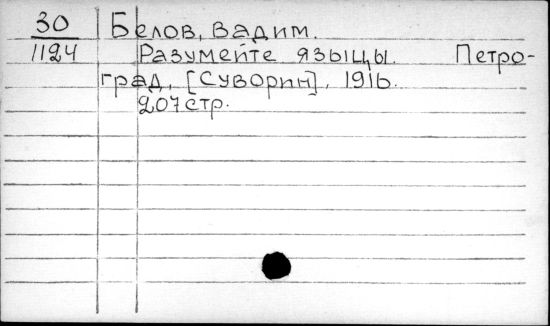 30 Белов, Вадим.
1124 Разумейте языцы. Петро-
град, [Суворин], 1916.
207 стр.